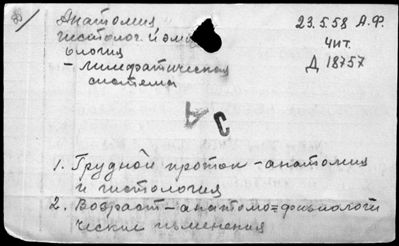 Анатомия
гистолог. и эмбри
ология
- лимфатическая
системы
23.5.58 А.Ф.
Чит.
Д 18757
1. Грудной проток - анатомия
и гистология
2. Возраст - анатомо=физиологи
ческие изменения